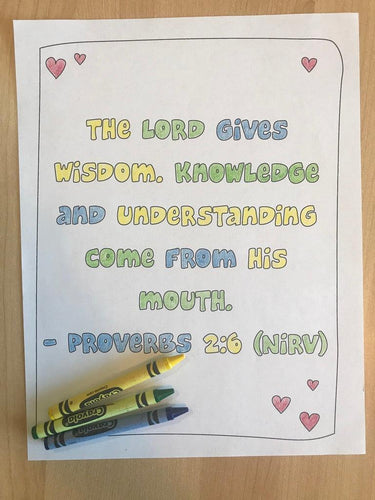 The LORD Gives
Wisdom. Knowledge
and understanding
come from His
mouth.
- Proverbs 2:6 (NiRV)
Crayola
Crayola
Crayola